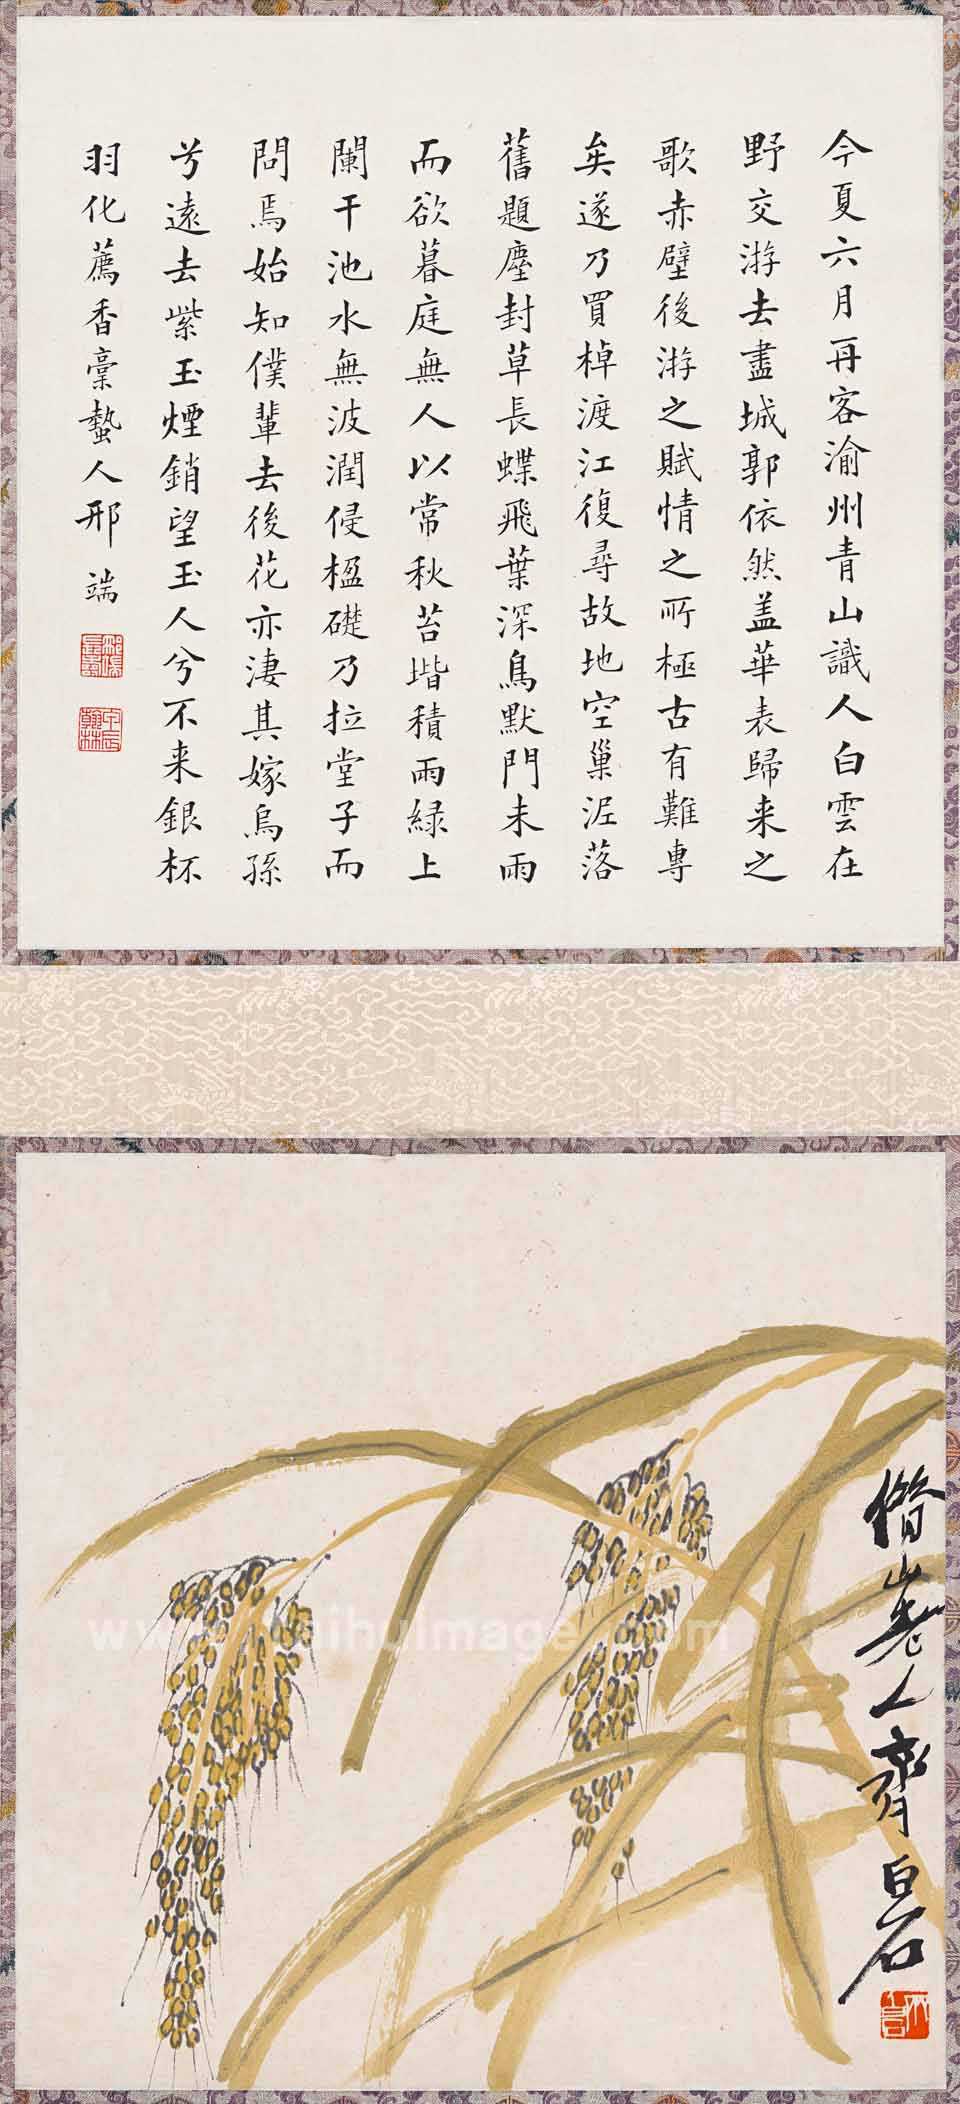 今夏六月再客渝州青山識人白雲在
野交游去盡城郭依然盖華表歸来之
歌赤壁後游之賦情之所極古有難專
矣遂乃買棹渡江復尋故地空巢泥落
舊題塵封草長蝶飛葉深鳥默門未雨
而欲暮庭無人以常秋苔堦積雨緑上
闌干池水無波潤侵楹礎乃拉堂子而
問焉始知僕輩去後花亦淒其嫁烏孫
兮遠去紫玉煙銷望玉人兮不来銀杯
羽化薦香稾蟄人邢端
借山老人齊白石
www. aihuimage.com